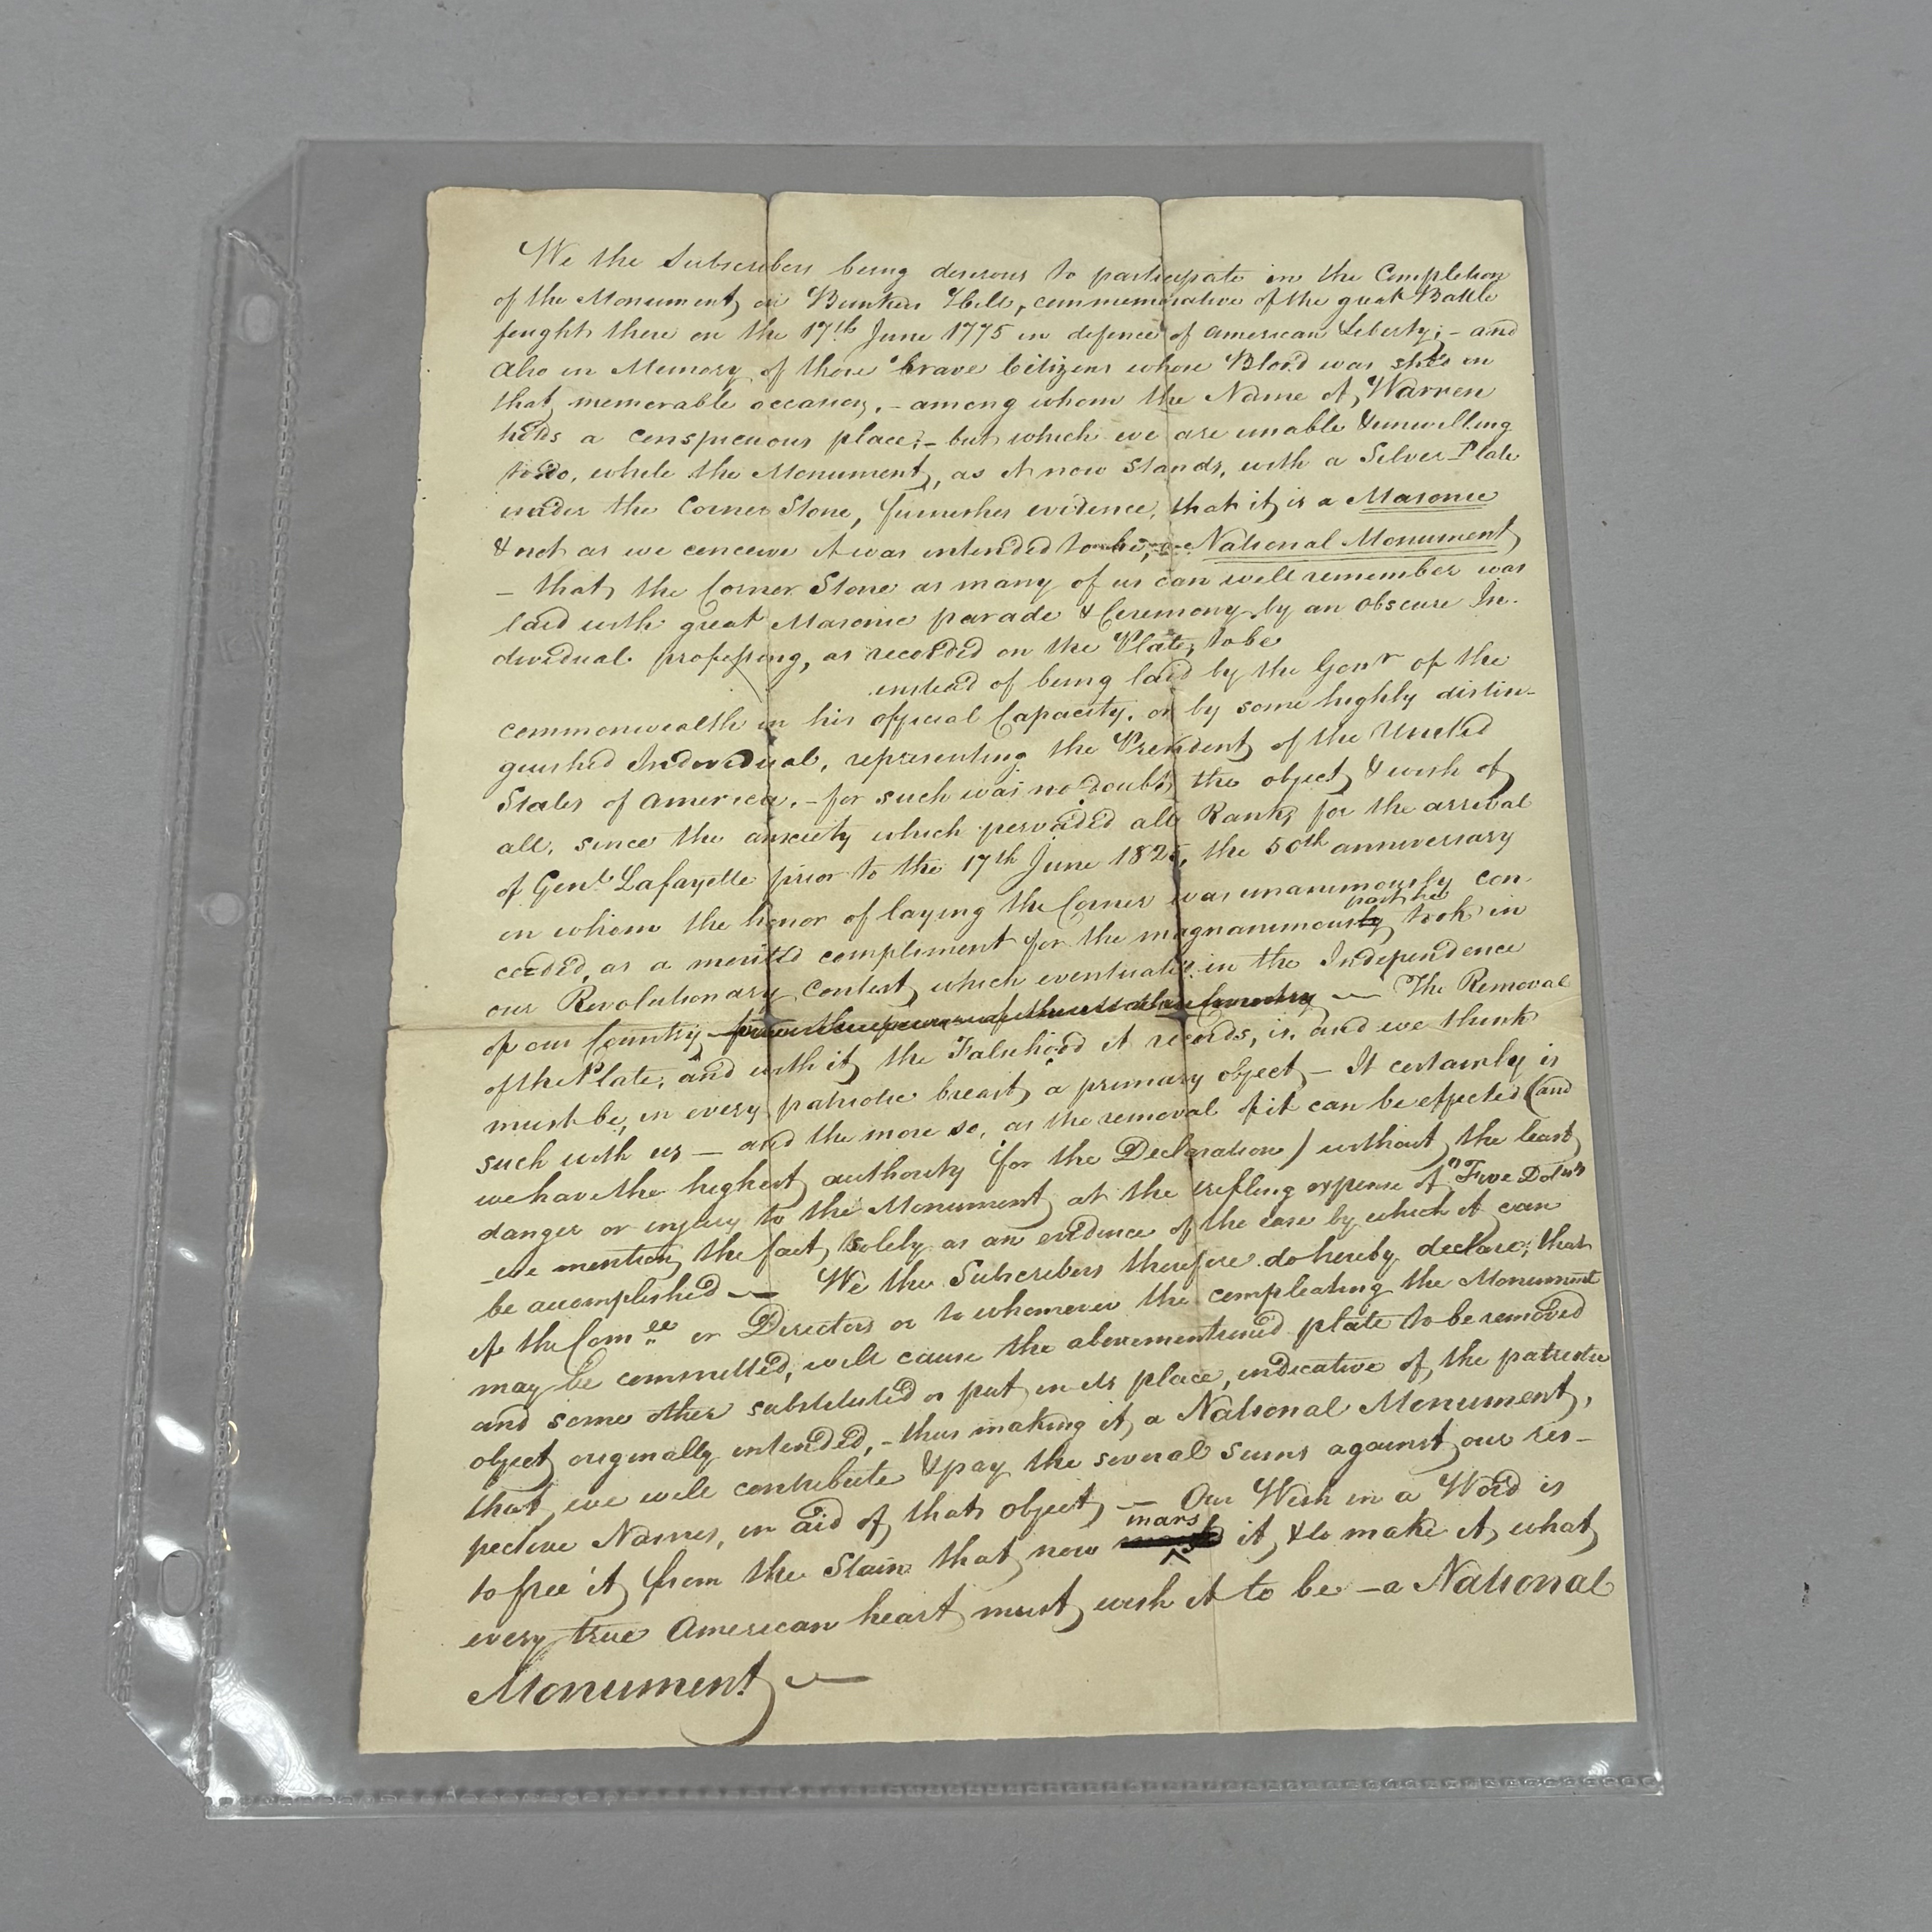 We the Subscribers being desirous to participate in the Completion
of the Monument on Bunkers Hill, commemorative of the great Battle
fought there on the 17th June 1775 in defence of American Liberty; – and
also in Memory of those brave Citizens whose Blood was shed on
that memorable occasion, – among whom the Name of Warren
holds a conspicuous place; – but which we are unable & unwilling
to do, while the Monument, as it now stands, with a Silver Plate
under the Corner Stone, furnishes evidence, that it is a Masonic
& not as we conceive it was intended to be, a National Monument
– that the Corner Stone as many of us can well remember was
laid with great Masonic parade & Ceremony by an obscure In-
dividual professing, as recorded on the Plate, to be
instead of being laid by the Govr of the
commonwealth in his official Capacity, or by some highly distin-
guished Individual, representing the President of the United
States of America, – for such was no doubt the object & wish of
all, since the anxiety which pervaded all Ranks for the arrival
of Genl Lafayette prior to the 17th June 1825, the 50th anniversary
on whom the honor of laying the Corner was unanimously con-
ceeded, as a merited compliment for the magnanimous part he took in
our Revolutionary Contest, which eventuated in the Independence
of our Country — The Removal
of the Plate, and with it the Falsehood it records, is, and we think
must be, in every patriotic breast a primary object – It certainly is
such with us — and the more so, as the removal of it can be effected (and
we have the highest authority for the Declaration) without the least
danger or injury to the Monument at the trifling expense of "Five Dolrs"
– we mention the fact, solely as an evidence of the ease by which it can
be accomplished — We the Subscribers therefore do hereby declare, that
if the Comee or Directors or to whomever the compleating the Monument
may be committed, will cause the abovementioned plate to be removed
and some other substituted or put in its place, indicative of the patriotic
object originally intended, – thus making it a National Monument,
that we will contribute & pay the several sums against our res-
pective Names, in aid of that object — Our Wish in a Word is
to free it from the Stain that now mars it, & to make it what
every true American heart must wish it to be – a National
Monument —